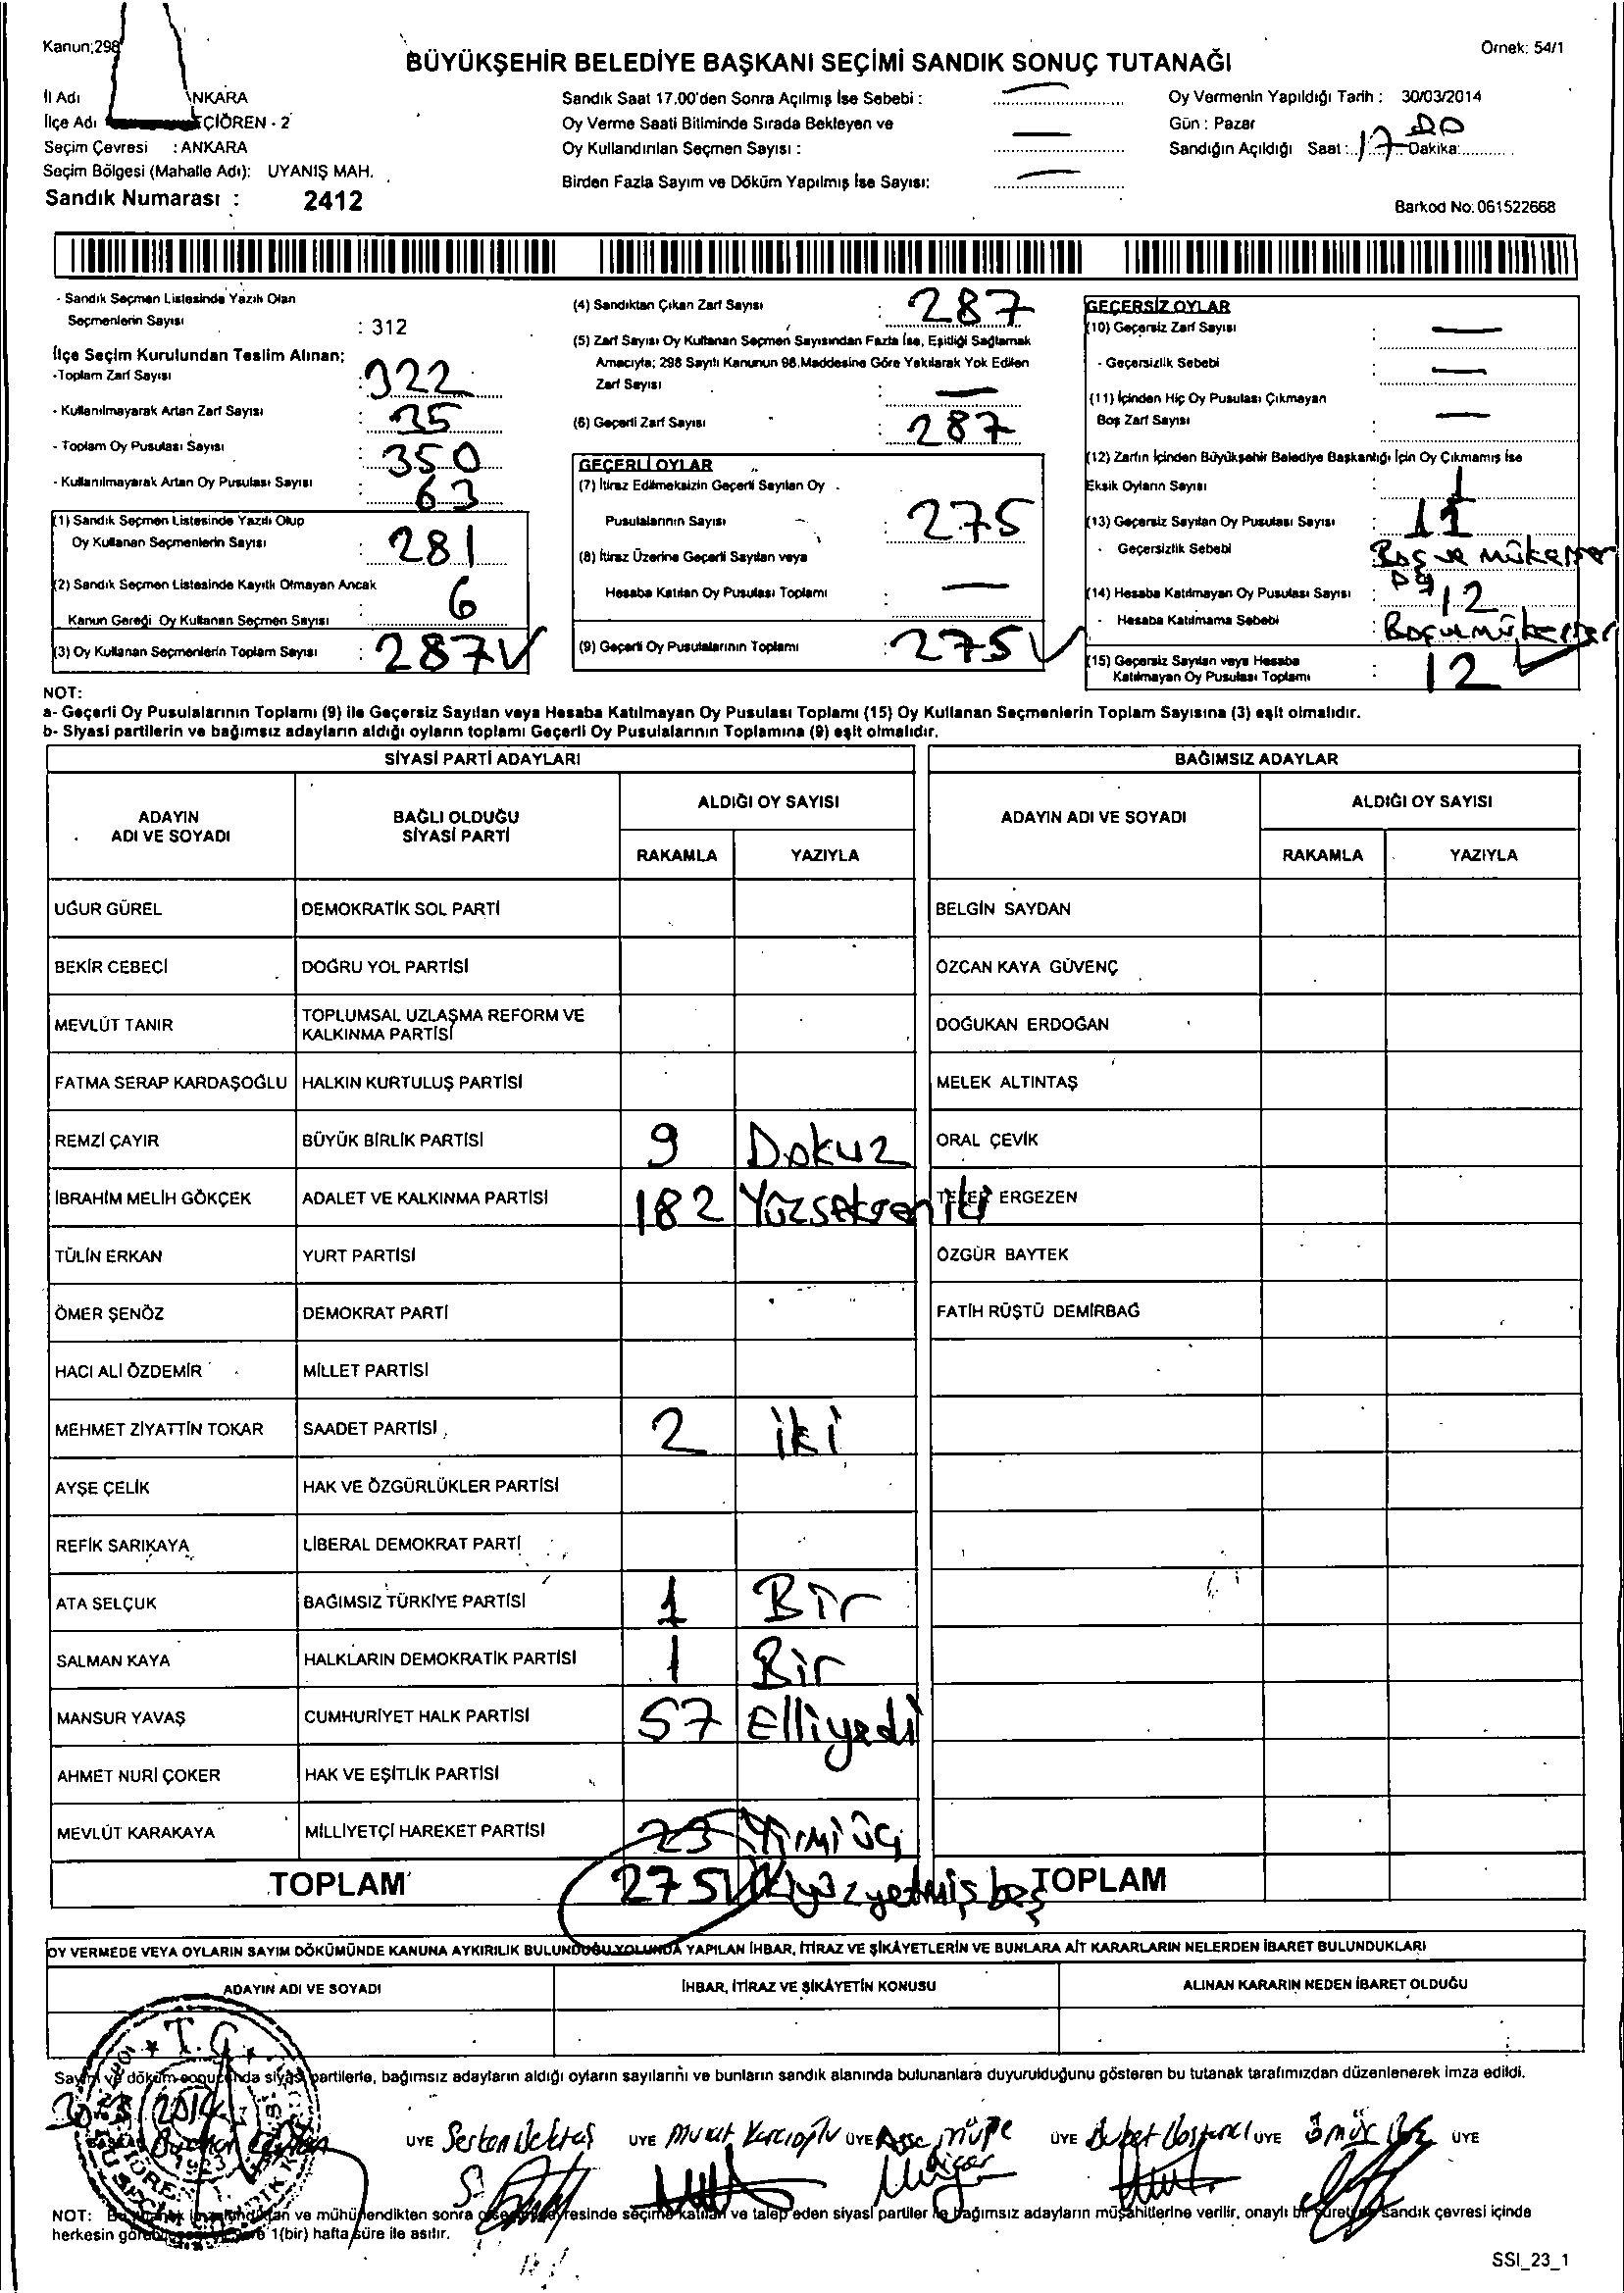 Kanun;298
Örnek: 54/1
BÜYÜKŞEHİR BELEDİYE BAŞKANI SEÇİMİ SANDIK SONUÇ TUTANAĞI
İl Adı NKARA
İlçe Adı ÇİÖREN - 2
Seçim Çevresi : ANKARA
Seçim Bölgesi (Mahalle Adı): UYANIŞ MAH.
Sandık Numarası : 2412
Sandık Saat 17.00'den Sonra Açılmış İse Sebebi : —
Oy Verme Saati Bitiminde Sırada Bekleyen ve
Oy Kullandırılan Seçmen Sayısı : —
Birden Fazla Sayım ve Döküm Yapılmış İse Sayısı: —
Oy Vermenin Yapıldığı Tarih : 30/03/2014
Gün : Pazar
Sandığın Açıldığı Saat : 17 Dakika: 00
Barkod No: 061522668
- Sandık Seçmen Listesinde Yazılı Olan
Seçmenlerin Sayısı : 312
İlçe Seçim Kurulundan Teslim Alınan;
-Toplam Zarf Sayısı : 322
- Kullanılmayarak Artan Zarf Sayısı : 35
- Toplam Oy Pusulası Sayısı : 350
- Kullanılmayarak Artan Oy Pusulası Sayısı : 63
(1) Sandık Seçmen Listesinde Yazılı Olup
Oy Kullanan Seçmenlerin Sayısı : 281
(2) Sandık Seçmen Listesinde Kayıtlı Olmayan Ancak
Kanun Gereği Oy Kullanan Seçmen Sayısı : 6
(3) Oy Kullanan Seçmenlerin Toplam Sayısı : 287
(4) Sandıktan Çıkan Zarf Sayısı : 287
(5) Zarf Sayısı Oy Kullanan Seçmen Sayısından Fazla İse, Eşitliği Sağlamak
Amacıyla; 298 Sayılı Kanunun 98.Maddesine Göre Yakılarak Yok Edilen
Zarf Sayısı : —
(6) Geçerli Zarf Sayısı : 287
GEÇERLİ OYLAR
(7) İtiraz Edilmeksizin Geçerli Sayılan Oy
Pusulalarının Sayısı : 275
(8) İtiraz Üzerine Geçerli Sayılan veya
Hesaba Katılan Oy Pusulası Toplamı : —
(9) Geçerli Oy Pusulalarının Toplamı : 275
GEÇERSİZ OYLAR
(10) Geçersiz Zarf Sayısı : —
- Geçersizlik Sebebi : —
(11) İçinden Hiç Oy Pusulası Çıkmayan
Boş Zarf Sayısı : —
(12) Zarfın İçinden Büyükşehir Belediye Başkanlığı İçin Oy Çıkmamış İse
Eksik Oyların Sayısı : 1
(13) Geçersiz Sayılan Oy Pusulası Sayısı : 11
- Geçersizlik Sebebi : Boş ve mükerrer oy
(14) Hesaba Katılmayan Oy Pusulası Sayısı : 12
- Hesaba Katılmama Sebebi : Boş ve mükerrer
(15) Geçersiz Sayılan veya Hesaba
Katılmayan Oy Pusulası Toplamı : 12
NOT:
a- Geçerli Oy Pusulalarının Toplamı (9) ile Geçersiz Sayılan veya Hesaba Katılmayan Oy Pusulası Toplamı (15) Oy Kullanan Seçmenlerin Toplam Sayısına (3) eşit olmalıdır.
b- Siyasi partilerin ve bağımsız adayların aldığı oyların toplamı Geçerli Oy Pusulalarının Toplamına (9) eşit olmalıdır.
SİYASİ PARTİ ADAYLARI BAĞIMSIZ ADAYLAR
ADAYIN ADI VE SOYADI BAĞLI OLDUĞU SİYASİ PARTİ ALDIĞI OY SAYISI ADAYIN ADI VE SOYADI ALDIĞI OY SAYISI
RAKAMLA YAZIYLA RAKAMLA YAZIYLA
UĞUR GÜREL DEMOKRATİK SOL PARTİ BELGİN SAYDAN
BEKİR CEBECİ DOĞRU YOL PARTİSİ ÖZCAN KAYA GÜVENÇ
MEVLÜT TANIR TOPLUMSAL UZLAŞMA REFORM VE KALKINMA PARTİSİ DOĞUKAN ERDOĞAN
FATMA SERAP KARDAŞOĞLU HALKIN KURTULUŞ PARTİSİ MELEK ALTINTAŞ
REMZİ ÇAYIR BÜYÜK BİRLİK PARTİSİ 9 Dokuz ORAL ÇEVİK
İBRAHİM MELİH GÖKÇEK ADALET VE KALKINMA PARTİSİ 182 Yüzseksen iki ERGEZEN
TÜLİN ERKAN YURT PARTİSİ ÖZGÜR BAYTEK
ÖMER ŞENÖZ DEMOKRAT PARTİ FATİH RÜŞTÜ DEMİRBAĞ
HACI ALİ ÖZDEMİR MİLLET PARTİSİ
MEHMET ZİYATTİN TOKAR SAADET PARTİSİ 2 iki
AYŞE ÇELİK HAK VE ÖZGÜRLÜKLER PARTİSİ
REFİK SARIKAYA LİBERAL DEMOKRAT PARTİ
ATA SELÇUK BAĞIMSIZ TÜRKİYE PARTİSİ 1 Bir
SALMAN KAYA HALKLARIN DEMOKRATİK PARTİSİ 1 Bir
MANSUR YAVAŞ CUMHURİYET HALK PARTİSİ 57 Elliyedi
AHMET NURİ ÇOKER HAK VE EŞİTLİK PARTİSİ
MEVLÜT KARAKAYA MİLLİYETÇİ HAREKET PARTİSİ 23 Yirmi üç
TOPLAM 275 ikiyüzyetmişbeş TOPLAM
OY VERMEDE VEYA OYLARIN SAYIM DÖKÜMÜNDE KANUNA AYKIRILIK BULUNDUĞU YOLUNDA YAPILAN İHBAR, İTİRAZ VE ŞİKÂYETLERİN VE BUNLARA AİT KARARLARIN NELERDEN İBARET BULUNDUKLARI
ADAYIN ADI VE SOYADI İHBAR, İTİRAZ VE ŞİKÂYETİN KONUSU ALINAN KARARIN NEDEN İBARET OLDUĞU
T.C.
Sayım ve döküm sonucunda siyasi partilerle, bağımsız adayların aldığı oyların sayılarını ve bunların sandık alanında bulunanlara duyurulduğunu gösteren bu tutanak tarafımızdan düzenlenerek imza edildi.
2014
BAŞKAN ÜYE Serkan Bektaş ÜYE Murat ÜYE Ayşe ÜYE ÜYE Ömür ÜYE
NOT: ve mühürlendikten sonra seçime katılan ve talep eden siyasi partiler ile bağımsız adayların müşahitlerine verilir, onaylı bir sureti de sandık çevresi içinde
herkesin 1(bir) hafta süre ile asılır.
SSI_23_1